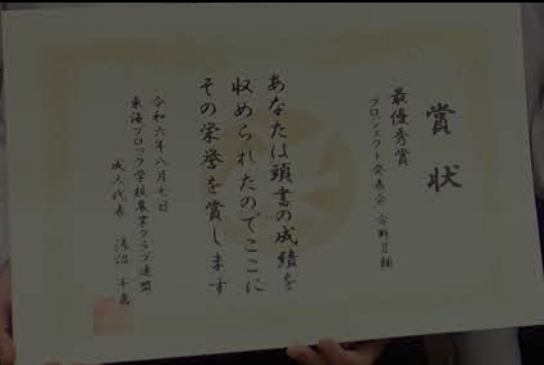 賞状
最優秀賞
プロジェクト発表会 分野Ⅱ類
あなたは頭書の成績を
収められたのでここに
その栄誉を賞します
令和六年八月七日
東海ブロック学校農業クラブ連盟
成人代表